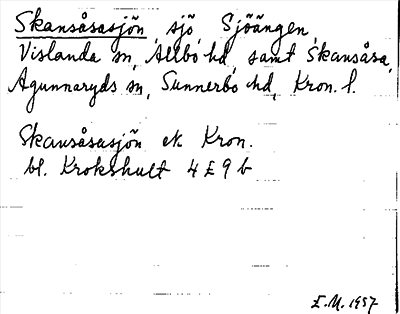 Skansåsasjön, sjö, Sjöängen,
Vislanda sn, Allbo hd, samt Skansåsa,
Agunnaryds sn, Sunnerbo hd, Kron. l.
Skansåsasjön ek Kron.
bl. Krokshult 4E9b
E.M. 1957